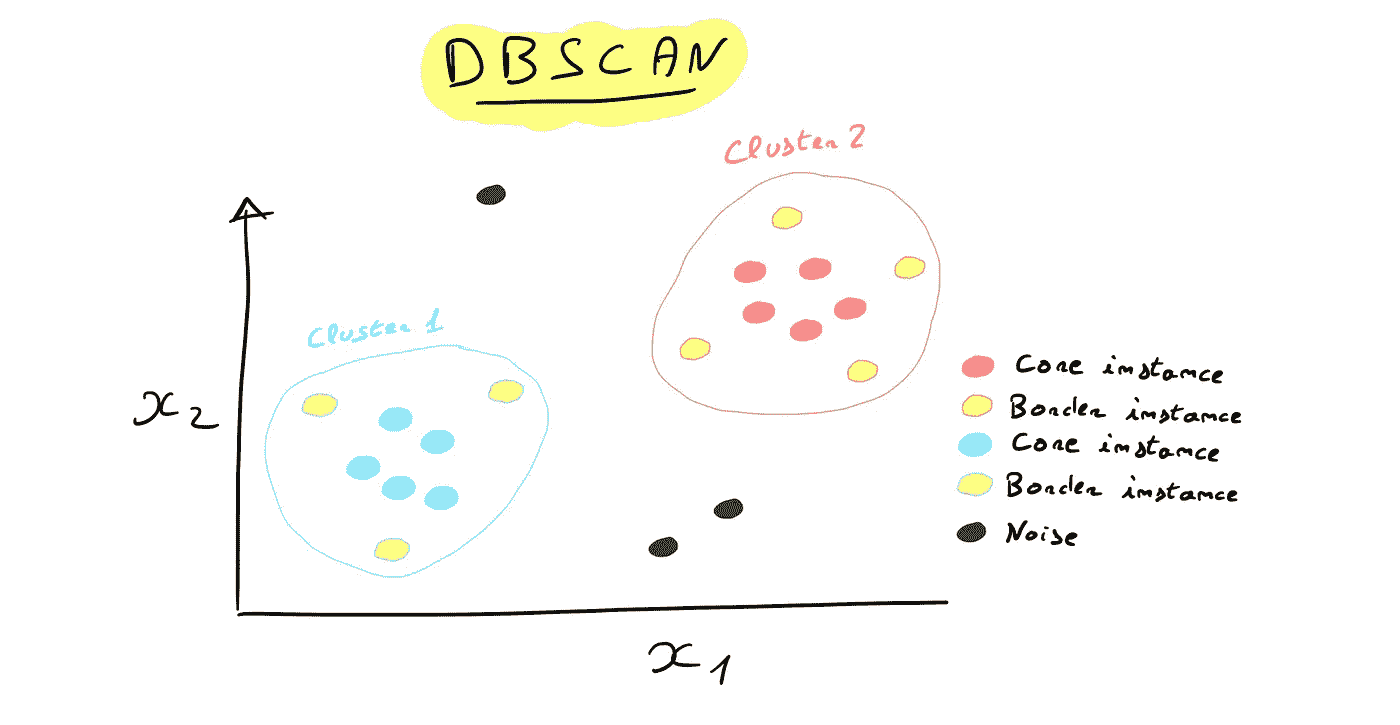 DBSCAN
Cluster 2
Cluster 1
x2
Core instance
Border instance
Core instance
Border instance
Noise
x1